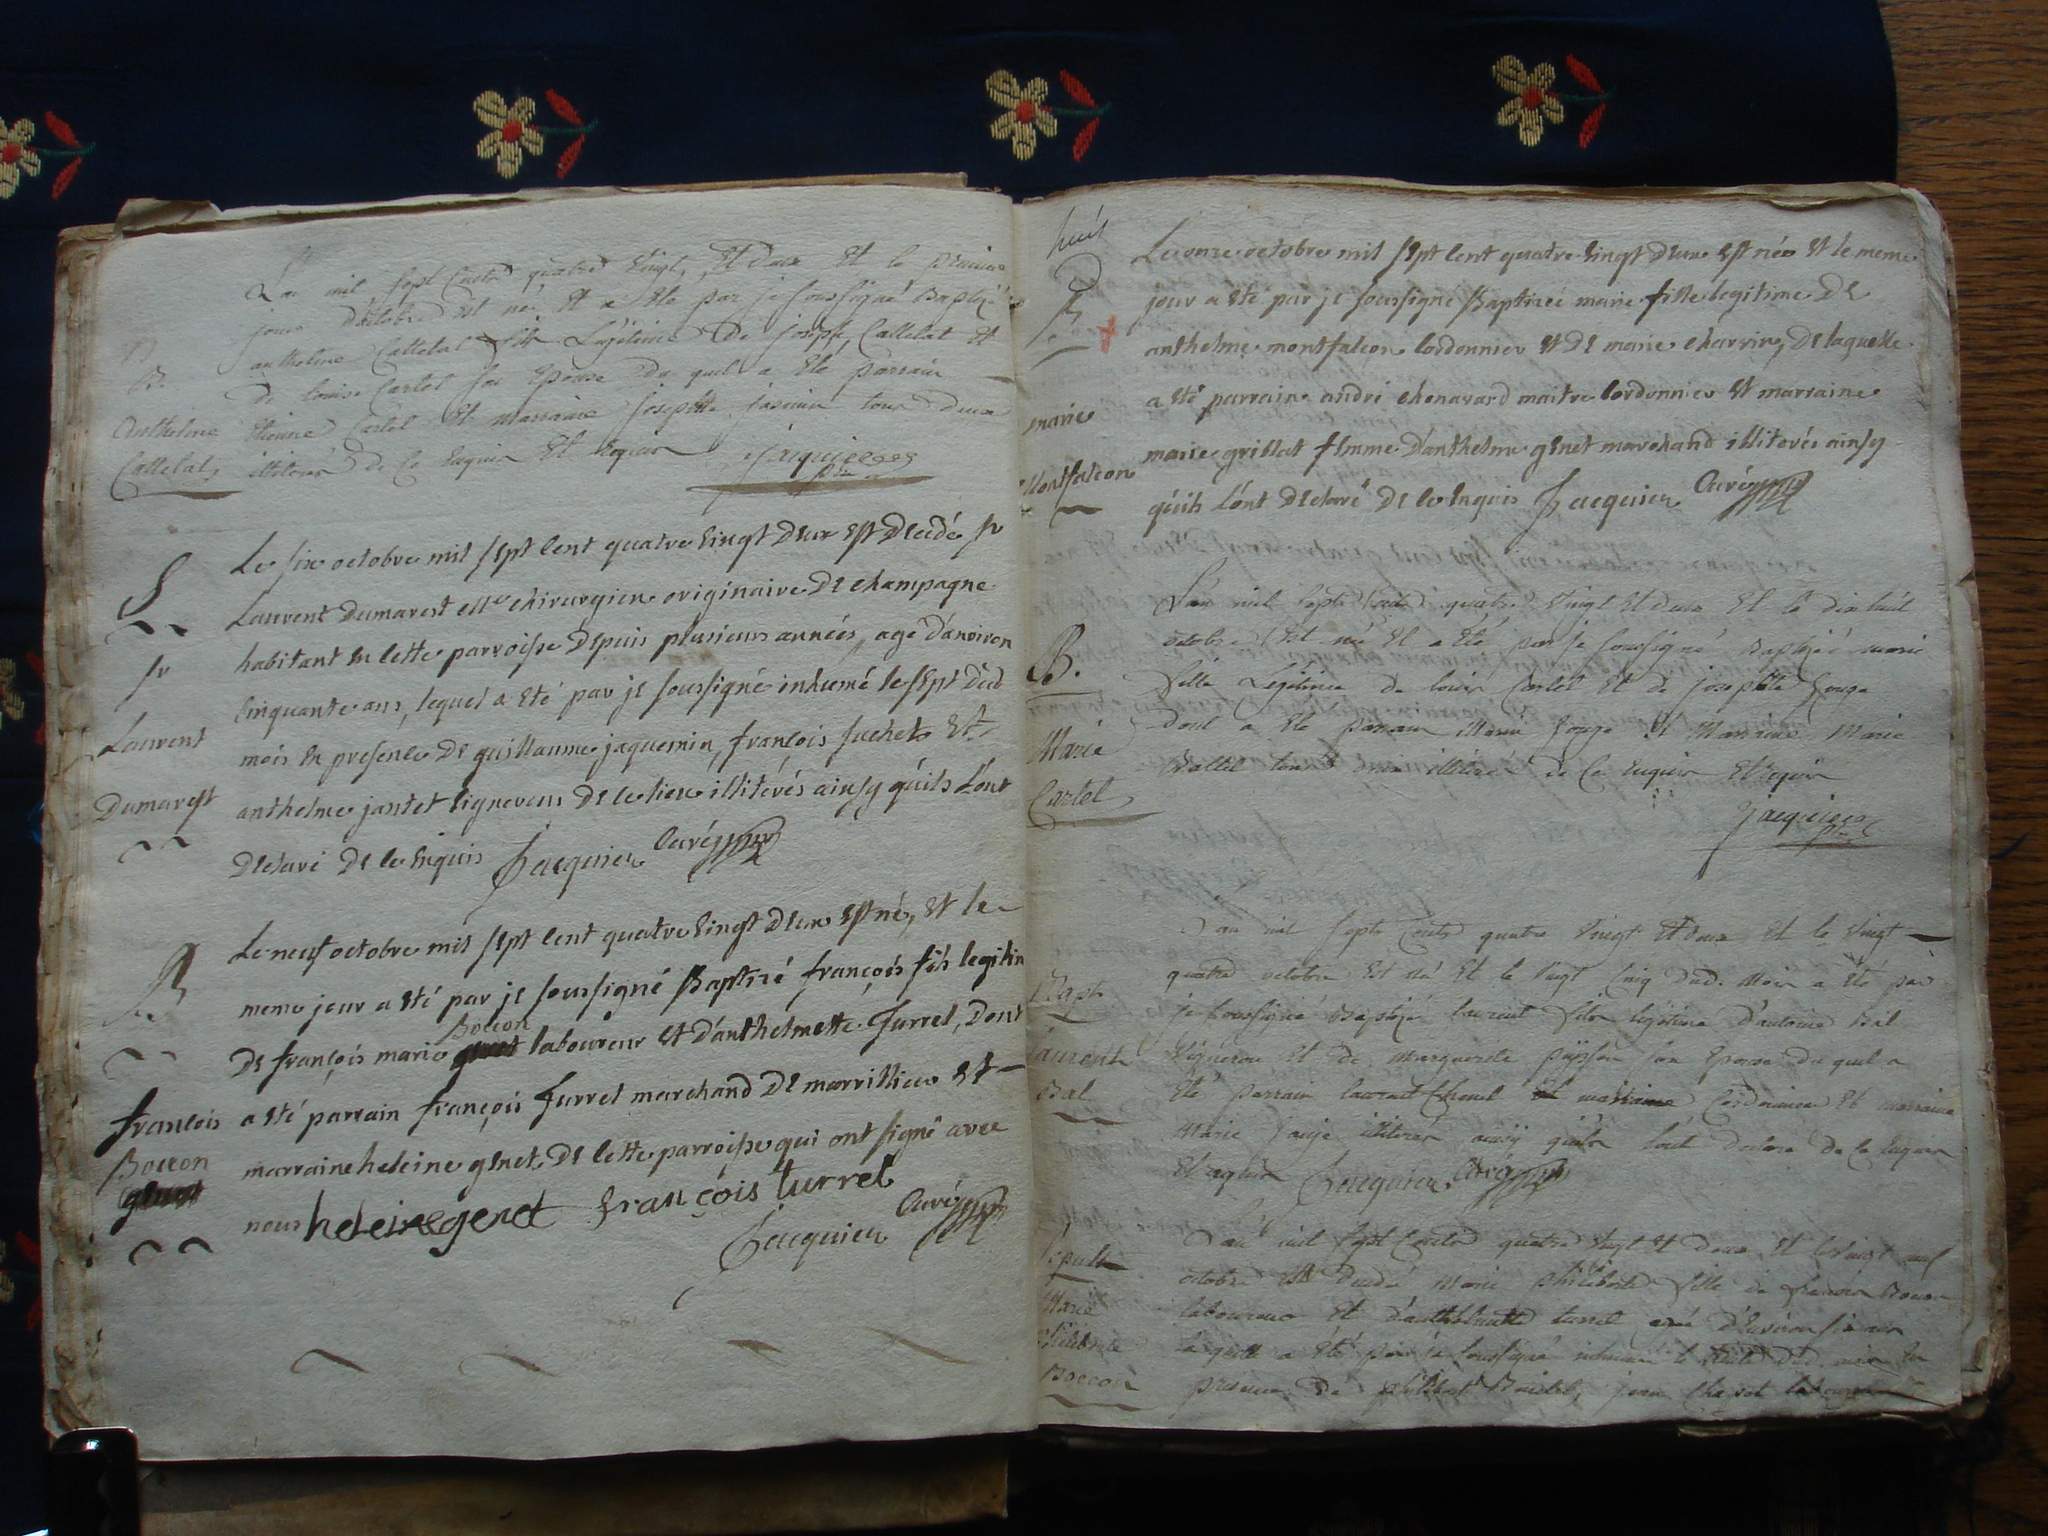 B.
Anthelme
Cattelat
L'an mil sept cents quatre vingt et deux et le premier
jour d'octobre est né et a été par je soussigné baptizé
anthelme Cattelat fils Légitime de joseph Cattelat et
de louise Cartet son épouse du quel a été parrain
étienne Cartet et marraine josephte tous deux
illiterés de ce enquis et requis jacquier
S.
sr
Laurent
Dumarest
Le six octobre mil sept cent quatre vingt deux est décédé sr
Laurent dumarest me chirurgien originaire de champagne
habitant en cette parroisse depuis plusieurs années, agé d'anviron
cinquante ans, lequel a eté par je soussigné inhumé le sept dud
mois en presence de guillaume jaquemin, françois suchet et
anthelme jantet vignerons de ce lieu illiterés ainsy qu'ils l'ont
declaré de ce enquis Jacquier Curé
B
françois
Boccon
genet
Le neuf octobre mil sept cent quatre vingt deux est né, et le
meme jour a eté par je soussigné Baptisé françois fils legitim
Boccon
de françois marie laboureur et d'anthelmette Turrel, dont
a eté parrain françois Turrel marchand de marrillieu et
marraine heleine genet de cette parroisse qui ont signé avec
nous heleine genet françois turrel
Jacquier Curé
huit
B
marie
Montfalcon
Le onze octobre mil sept cent quatre vingt deux est née et le meme
jour a eté par je soussigné Baptisée marie fille legitime de
anthelme montfalcon cordonnier et de marie charvin, de laquelle
a eté parrain andré chenavard maitre cordonnier et marraine
marie grillat femme d'anthelme genet marchand illiterés ainsy
qu'ils l'ont declaré de ce enquis Jacquier Curé
B.
Marie
Cartet
L'an mil sept cents quatre vingt et deux et le dix huit
octobre est née et a été par je soussigné baptizée marie
fille Légitime de louis Cartet et de josephte gouge
dont a été parrain gouge et Marraine Marie
tous illiterés de ce enquis et requis
jacquier
Bapt
Laurent
Bal
L'an mil sept cents quatre vingt et deux et le vingt
quatre octobre est né et le vingt cinq dud. mois a été par
je soussigné baptizé laurent fils légitime d'antoine Bal
vigneron et de marguerite son épouse du quel a
été parrain laurent et marraine cordonnier et marraine
Marie illiterés ainsy qu'ils l'ont declaré de ce enquis
et requis Jacquier Curé
Sepult
Marie
Philiberte
Boccon
L'an mil sept cents quatre vingt et deux et le vingt neuf
octobre est décédée marie philiberte fille de françois Boccon
laboureur et d'anthelmette turrel agée d'environ six ans
laquelle a été par je soussigné inhumée le trente dud. mois en
presence de philibert jean laboureurs